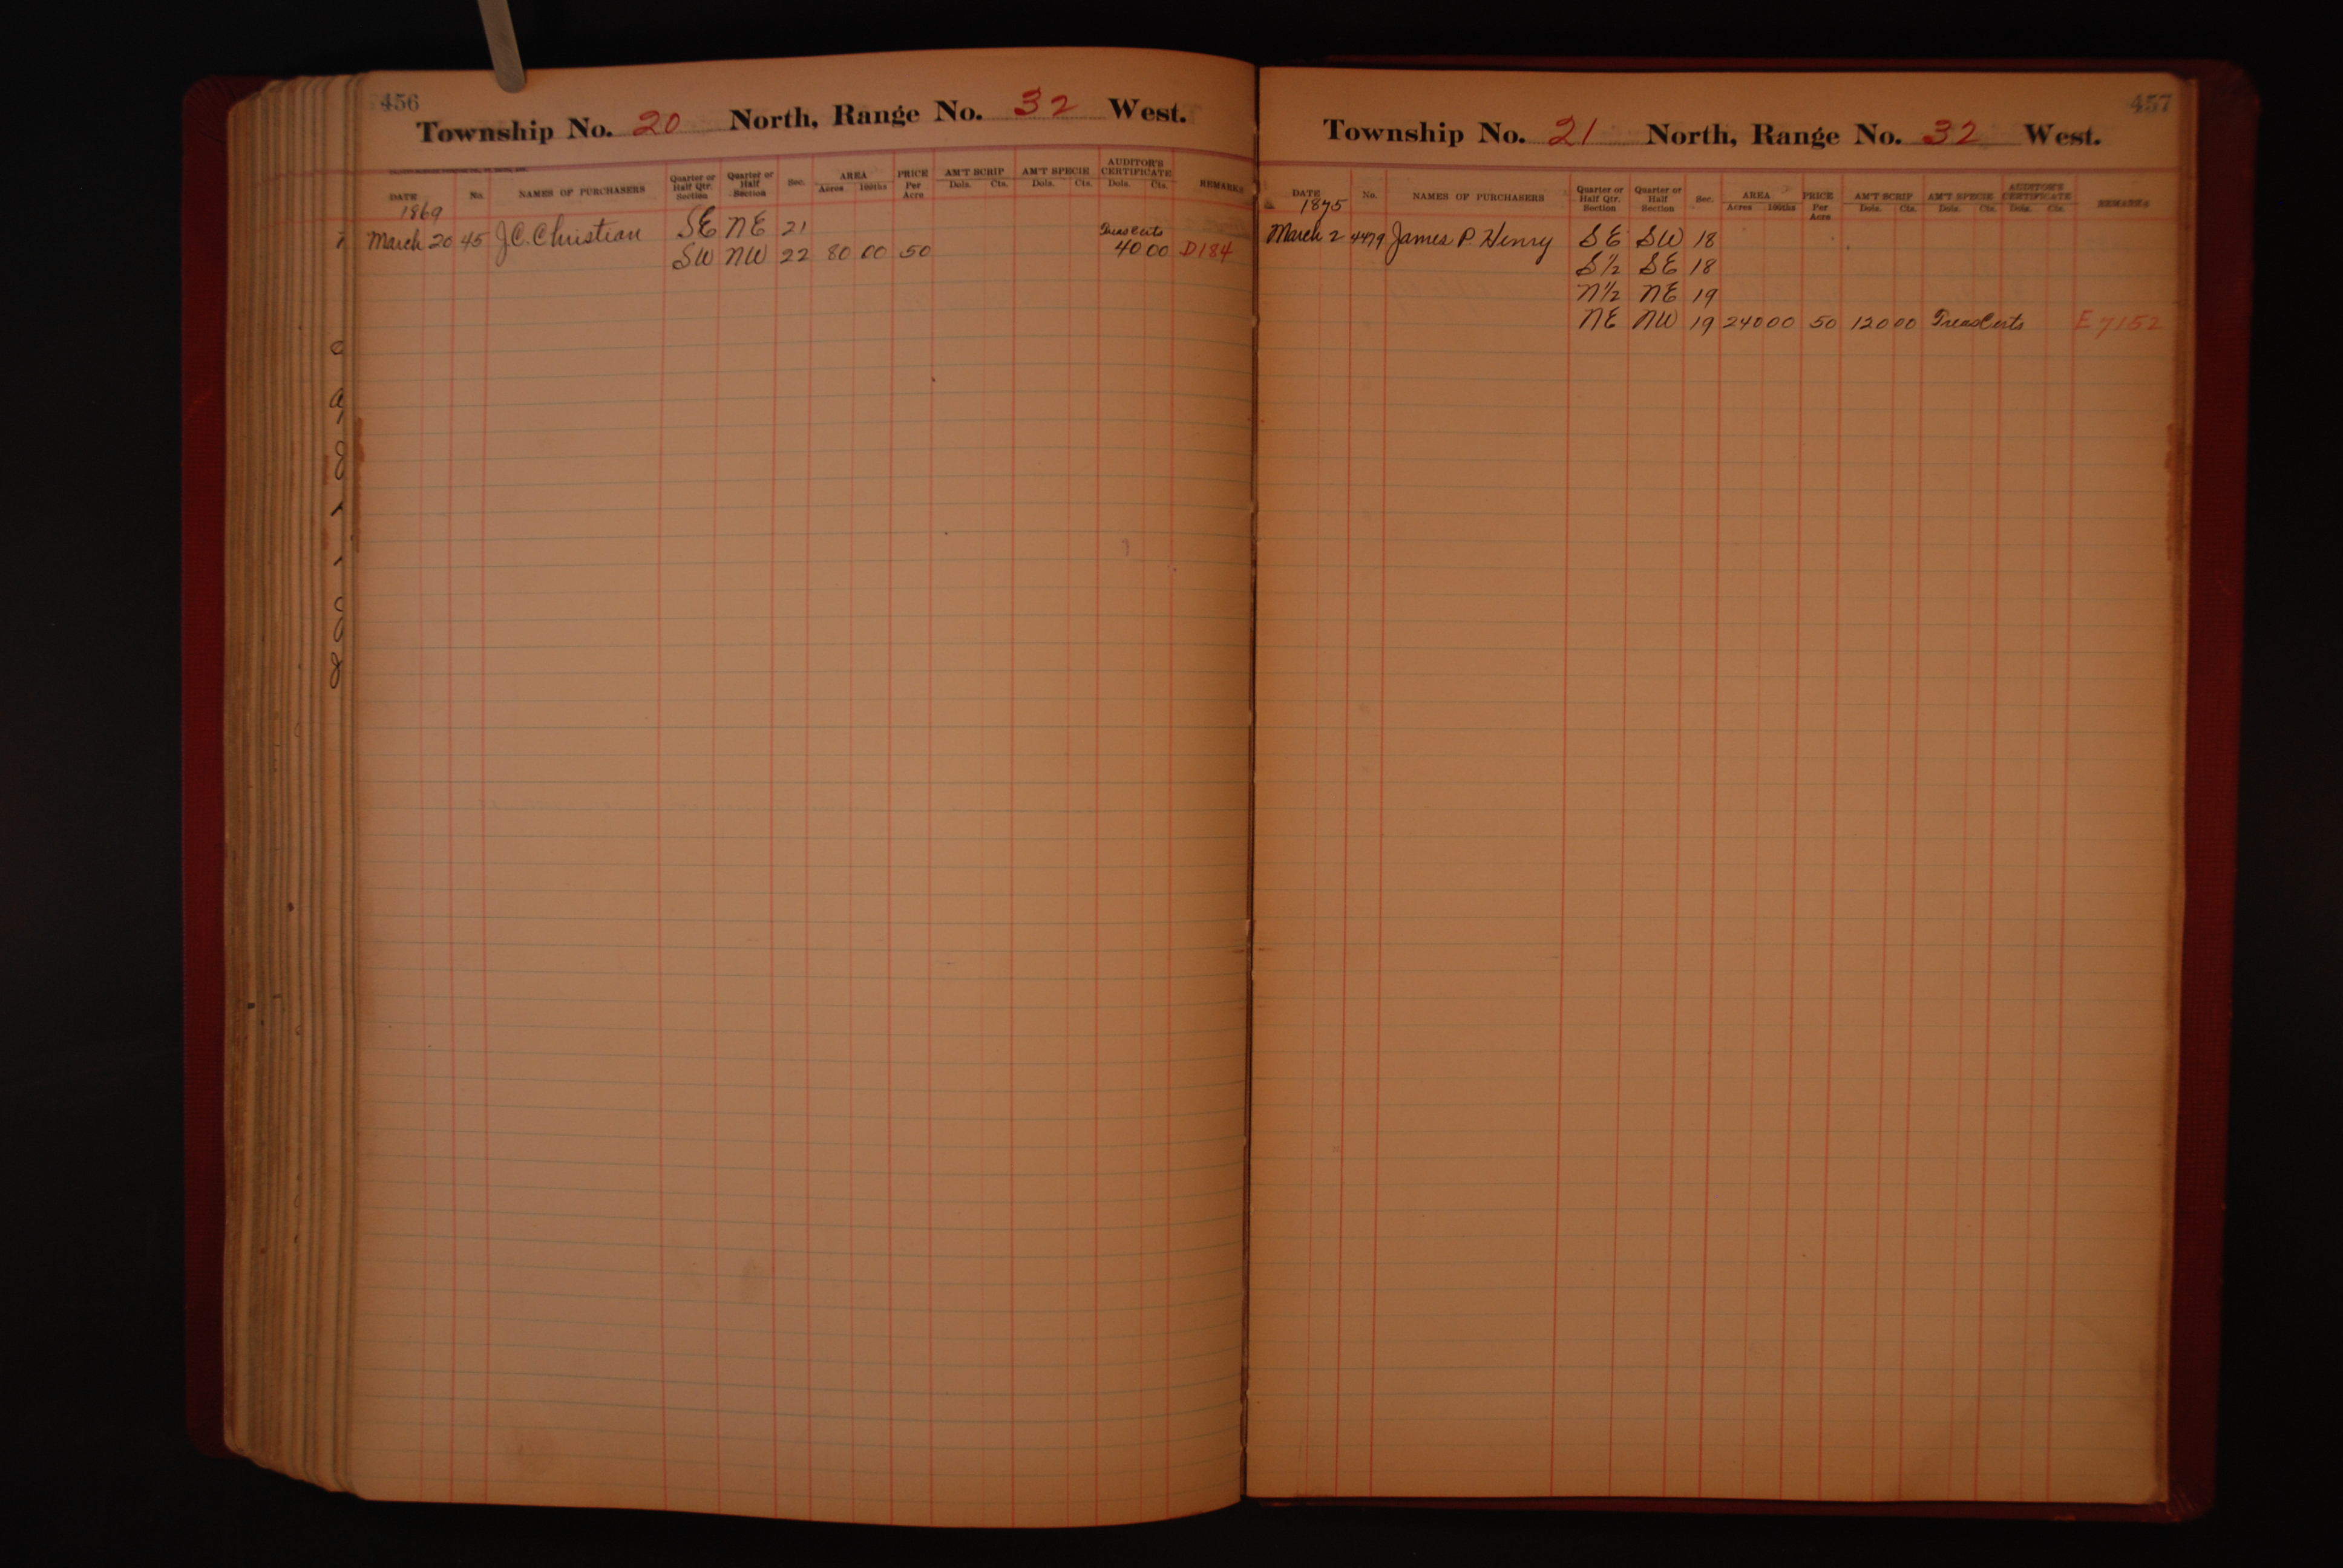 456
Township No. 20 North, Range No. 32 West.
DATE No. NAMES OF PURCHASERS Quarter or Half Qtr. Section Quarter or Half Section Sec. AREA Acres 100ths PRICE Per Acre AM'T SCRIP Dols. Cts. AM'T SPECIE Dols. Cts. AUDITOR'S CERTIFICATE Dols. Cts. REMARKS
1869
March 20 45 J.C. Christian SE NE 21 Treas Certs
SW NW 22 80 00 50 40 00 D184
457
Township No. 21 North, Range No. 32 West.
DATE No. NAMES OF PURCHASERS Quarter or Half Qtr. Section Quarter or Half Section Sec. AREA Acres 100ths PRICE Per Acre AM'T SCRIP Dols. Cts. AM'T SPECIE Dols. Cts. AUDITOR'S CERTIFICATE Dols. Cts. REMARKS
1875
March 2 4479 James P. Henry SE SW 18
S½ SE 18
N½ NE 19
NE NW 19 240 00 50 120 00 Treas Certs E 7152